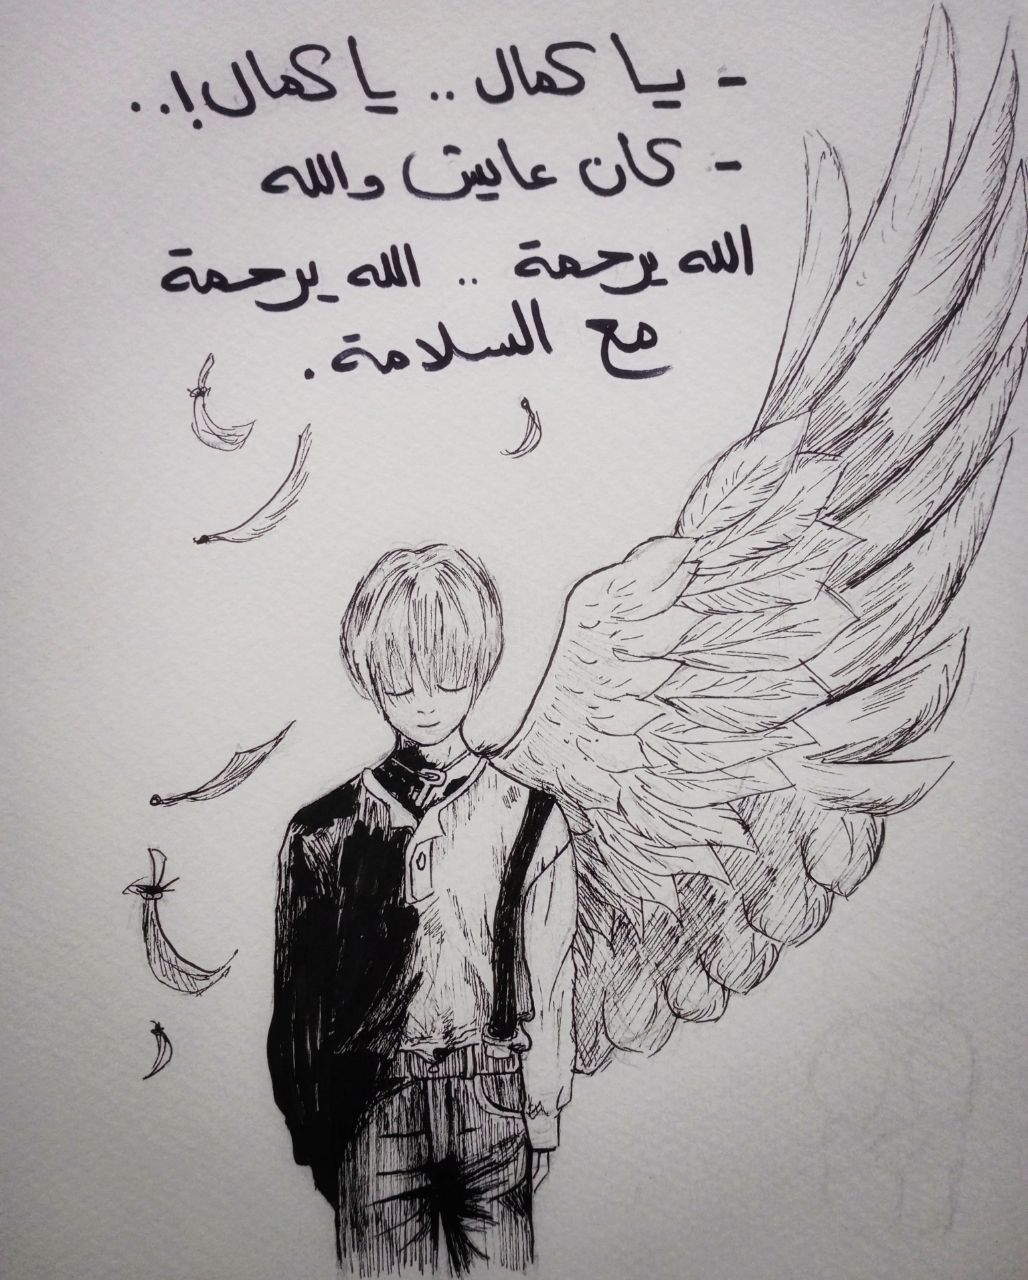 - يا كمال .. يا كمال!..
- كان عايش والله
الله يرحمة .. الله يرحمة
مع السلامة .